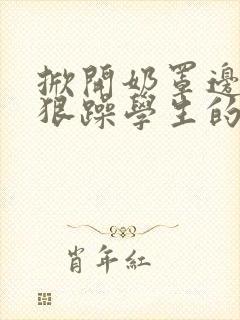 掀開奶罩邊
狠躁學生的
肖年紅